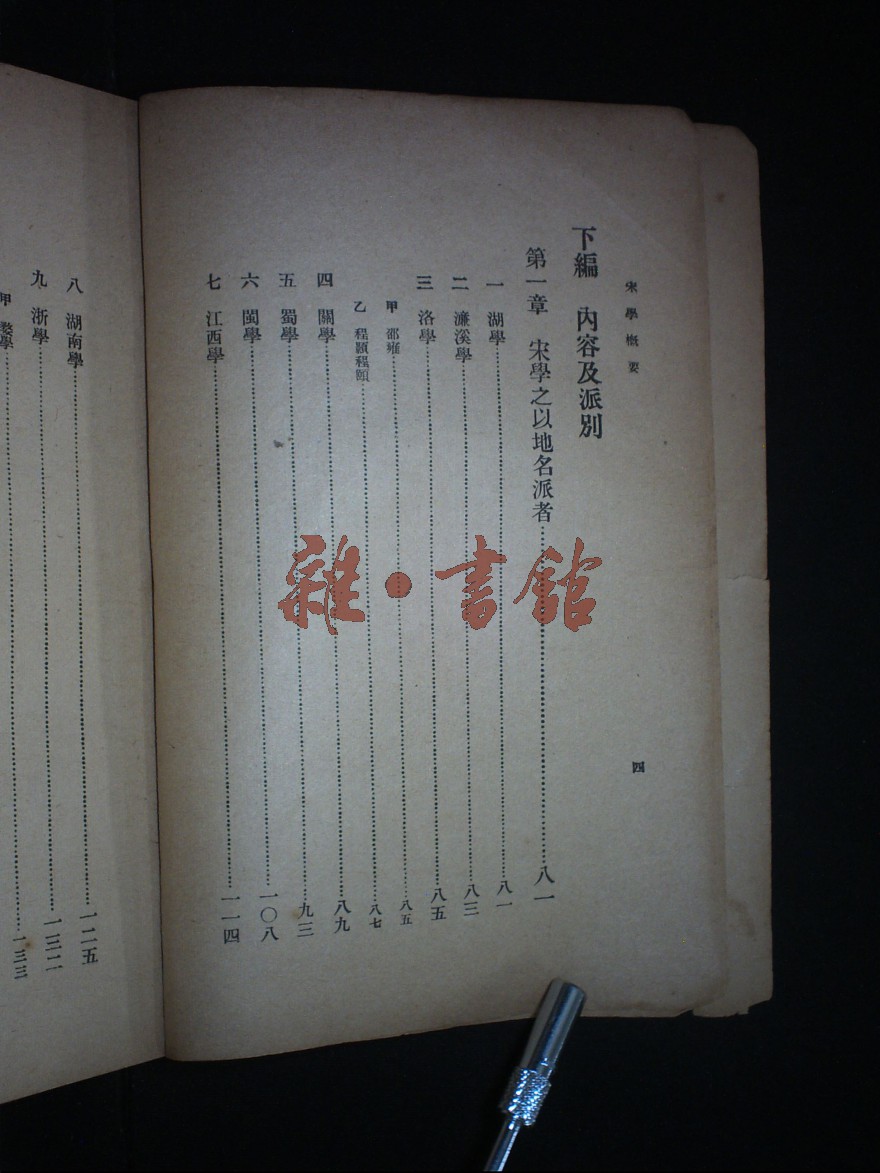 宋學概要
四
下編 內容及派別
第一章 宋學之以地名派者 八一
一 湖學 八一
二 濂溪學 八三
三 洛學 八五
甲 邵雍 八五
乙 程顥程頤 八七
四 關學 八九
五 蜀學 九三
六 閩學 一〇八
七 江西學 一一四
八 湖南學 一二五
九 浙學 一三二
甲 婺學 一三三
雜·書館